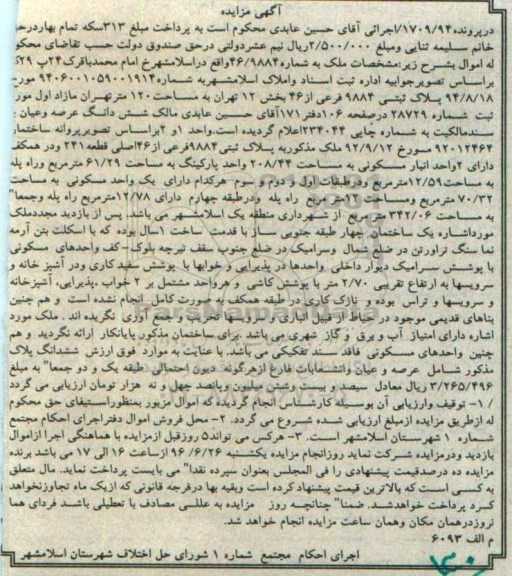 آگهی مزایده
درپرونده۱۷۰۹/۹۴/اجرائی آقای حسین عابدی محکوم است به پرداخت مبلغ ۳۱۳سکه تمام بهاردرحق
خانم سلیمه ثنایی ومبلغ ۲/۵۰۰/۰۰۰ریال نیم عشردولتی درحق صندوق دولت حسب تقاضای محکوم
له اموال بشرح زیر:مشخصات ملک به شماره۴۶/۹۸۸۴واقع دراسلامشهرخ امام محمدباقرک۲۴پ ۲۹ک
براساس تصویرجوابیه اداره ثبت اسناد واملاک اسلامشهربه شماره۹۴۰۶۰۰۱۰۵۹۰۰۱۹۱۴ مورخ
۹۴/۸/۱۸ پلاک ثبتی ۹۸۸۴ فرعی از۴۶ بخش ۱۲ تهران به مساحت۱۲۰ مترتهران مازاد اول مورد
ثبت شماره ۲۸۷۲۹ درصفحه ۱۰۶دفتر۱۷۱آقای حسین عابدی مالک شش دانگ عرصه وعیان
سندمالکیت به شماره چاپی ۲۳۴۰۴۴اعلام گردیده است.واحد ۱و ۲براساس تصویرپروانه ساختمان
۹۲۰۱۲۴۶۴ مورخ ۹۲/۹/۱۲ ملک مذکوربه پلاک ثبتی۹۸۸۴فرعی از۴۶اصلی قطعه۲۴۱ ودر همکف
دارای ۲واحد انبار مسکونی به مساحت ۲۰۸/۴۴ واحد پارکینگ به مساحت ۶۱/۲۹ مترمربع وراه پله
به مساحت۱۲/۵۹مترمربع ودرطبقات اول و دوم و سوم هرکدام دارای یک واحد مسکونی به مساحت
۷۰/۳۲ مترمربع ومساحت ۱۱متر مربع راه پله ودرطبقه چهارم دارای ۱۲/۷۸مترمربع راه پله وجمعا"
به مساحت ۳۴۲/۰۶ مترمربع از شهرداری منطقه یک اسلامشهر می باشد. پس از بازدید مجددملک
مورداشاره یک ساختمان چهار طبقه جنوبی ساز با قدمت ساخت ۱سال بوده که با اسکلت بتن آرمه
نما سنگ تراورتن در ضلع شمال وسرامیک در ضلع جنوب سقف تیرچه بلوک-کف واحدهای مسکونی
با پوشش سرامیک دیوار داخلی واحدها در پذیرایی و خوابها با پوشش سفید کاری ودر آشپز خانه و
سرویسها به ارتفاع تقریبی ۲/۷۰ متر با پوشش کاشی و هرواحد مشتمل بر ۲ خواب ،پذیرایی، آشپزخانه
و سرویسها و تراس بوده و نازک کاری در طبقه همکف به صورت کامل انجام نشده است و هم چنین
بناهای قدیمی موجود در حیاط از قبیل انباری و سرویس تخریب وجمع آوری نگریده اند . ملک مورد
اشاره دارای امتیاز آب و برق و گاز شهری می باشد .برای ساختمان مذکور پایانکار ارائه نگردید و هم
چنین واحدهای مسکونی فاقد سند تفکیکی می باشد. با عنایت به موارد فوق ارزش ششدانگ پلاک
مذکور شامل عرصه و عیان وانشعابات فارغ ازهرگونه دیون احتمالی طبقه یک و دو جمعا" به مبلغ
۳/۲۶۵/۴۹۶ ریال معادل سیصد و بیست وشش میلیون وپانصد چهل و نه هزار تومان ارزیابی می گردد
/ ۱- توقیف وارزیابی آن بوسیله کارشناس انجام گردیدکه اموال مزبور بمنظوراستیفای حق محکوم
له ازطریق مزایده ازمبلغ ارزیابی شده شروع می گردد. ۲- محل فروش اموال دفتراجرای احکام مجتمع
شماره ۱ شهرستان اسلامشهر است. ۳- هرکس می تواند۵ روزقبل ازمزایده با هماهنگی اجرا ازاموال
بازدید ودرمزایده شرکت نماید روزانجام مزایده یکشنبه ۹۶/۶/۲۶ ازساعت ۱۶ الی ۱۷ می باشد برنده
مزایده ده درصدقیمت پیشنهادی را فی المجلس بعنوان سپرده نقدا" می بایست پرداخت نماید. مال متعلق
به کسی است که بالاترین قیمت پیشنهاد کرده است وبقیه بها درفرجه قانونی که ازیک ماه تجاوزنخواهد
کرد پرداخت خواهدشد. ضمنا" چنانچه روز مزایده به عللی مصادف با تعطیلی باشد فردای هما
نروزدرهمان مکان وهمان ساعت مزایده انجام خواهد شد.
م الف ۶۰۹۳
اجرای احکام مجتمع شماره ۱ شورای حل اختلاف شهرستان اسلامشهر